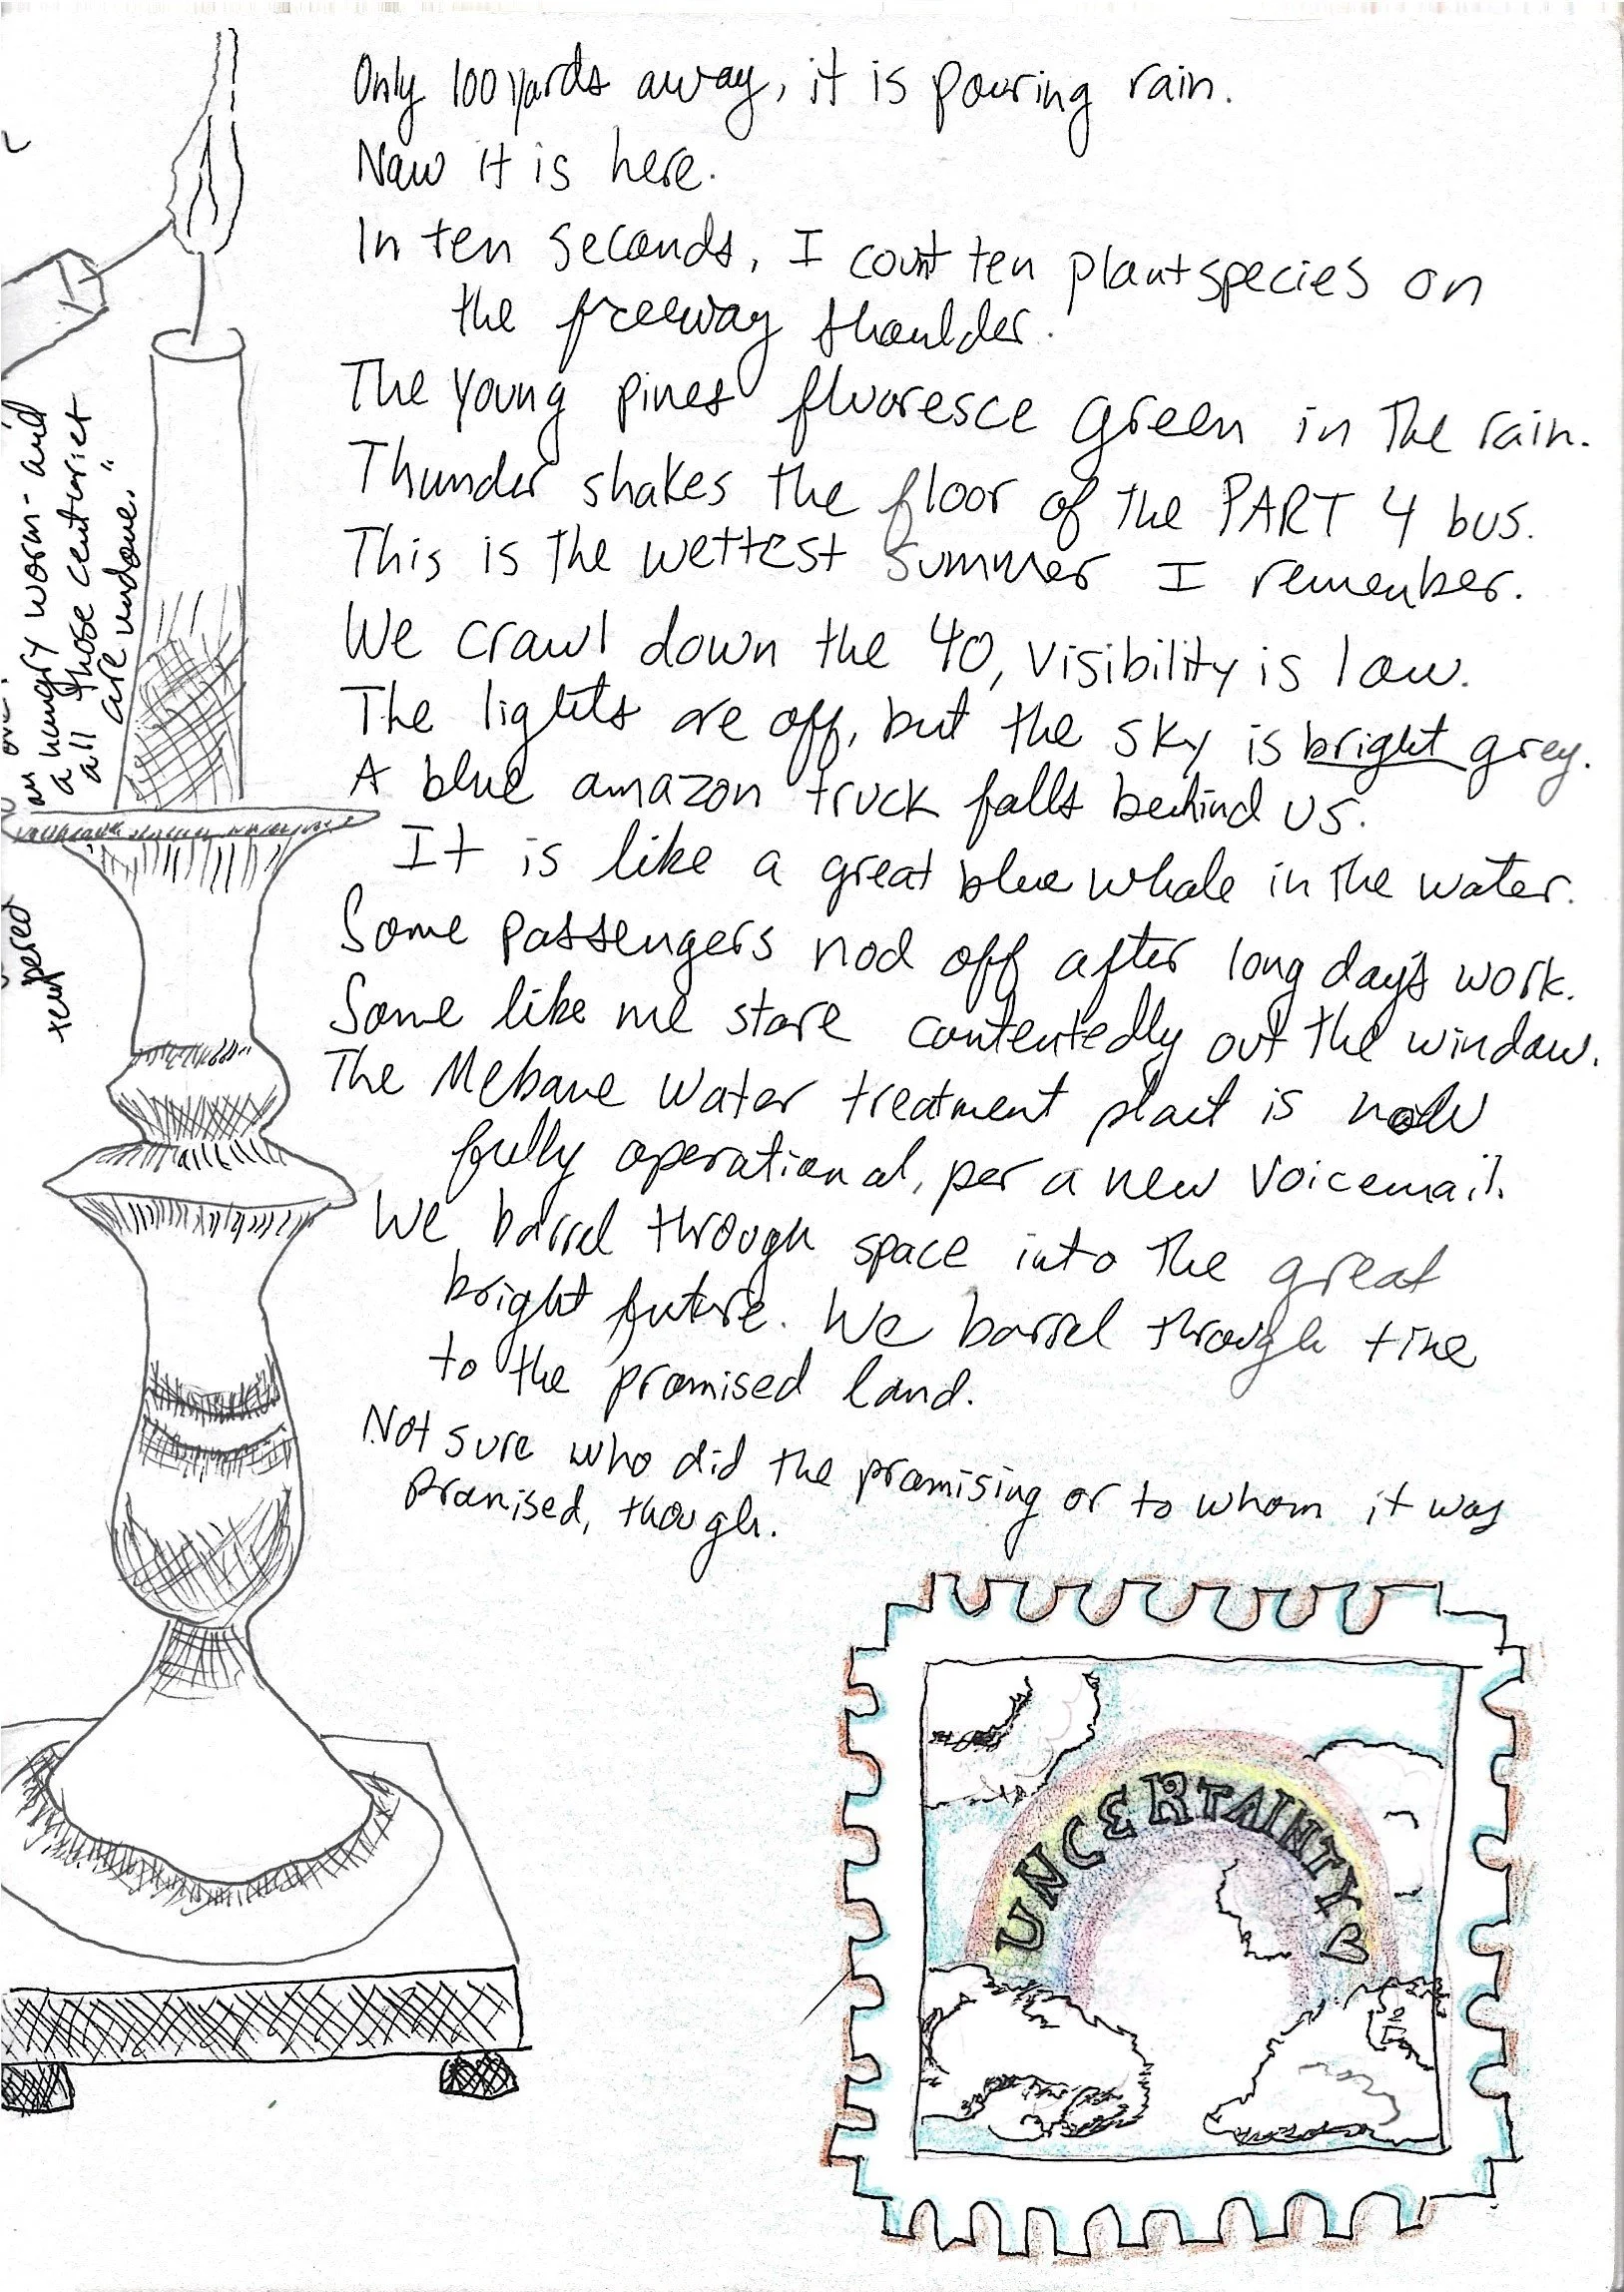 Only 100 yards away, it is pouring rain.
Now it is here.
In ten seconds, I count ten plant species on
the freeway shoulder.
The young pines fluoresce green in the rain.
Thunder shakes the floor of the PART 4 bus.
This is the wettest summer I remember.
We crawl down the 40, visibility is low.
The lights are off, but the sky is bright grey.
A blue amazon truck falls behind us.
It is like a great blue whale in the water.
Some passengers nod off after long day's work.
Some like me stare contentedly out the window.
The Mebane water treatment plant is now
fully operational, per a new voicemail.
We barrel through space into the great
bright future. We barrel through time
to the promised land.
Not sure who did the promising or to whom it was
promised, though.
a hungry worm - and
all those centuries
are undone."
UNCERTAINTY